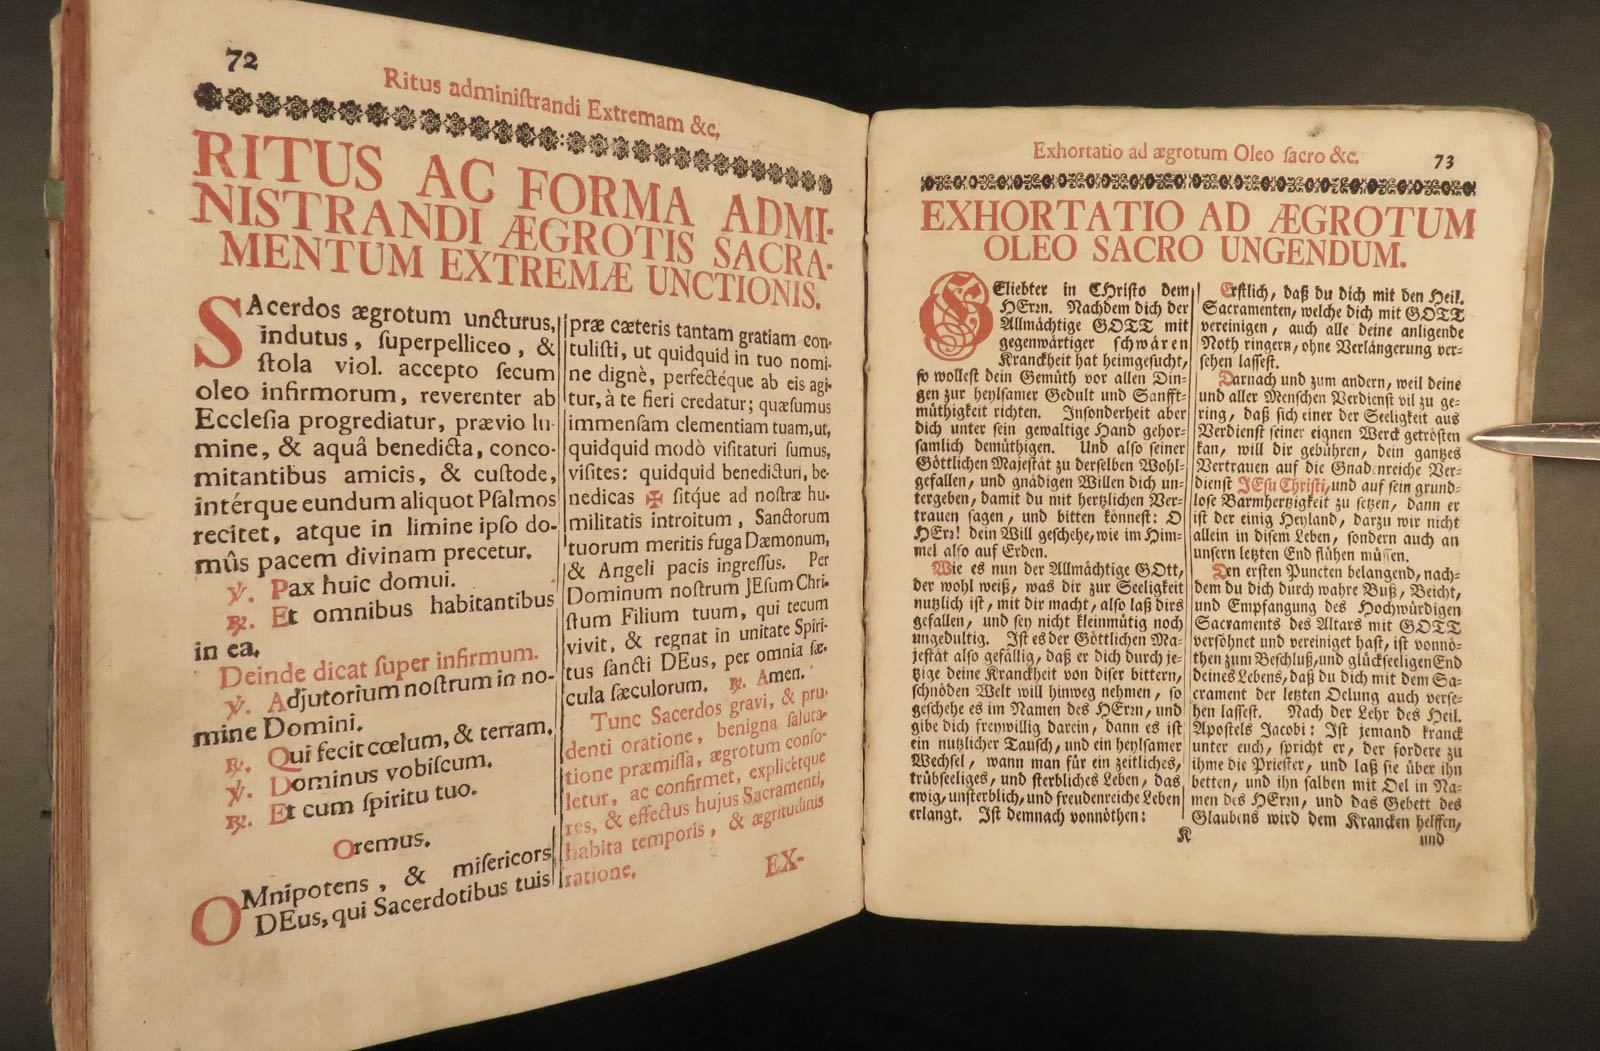 72
Ritus adminiſtrandi Extremam &c.
RITUS AC FORMA ADMI-
NISTRANDI ÆGROTIS SACRA-
MENTUM EXTREMÆ UNCTIONIS.
SAcerdos ægrotum uncturus,
indutus, ſuperpelliceo, &
ſtola viol. accepto ſecum
oleo infirmorum, reverenter ab
Eccleſia progrediatur, prævio lu-
mine, & aquâ benedicta, conco-
mitantibus amicis, & cuſtode,
intérque eundum aliquot Pſalmos
recitet, atque in limine ipſo do-
mûs pacem divinam precetur.
℣. Pax huic domui.
℟. Et omnibus habitantibus
in ea.
Deinde dicat ſuper infirmum.
℣. Adjutorium noſtrum in no-
mine Domini.
℟. Qui fecit cœlum, & terram.
℣. Dominus vobiſcum.
℟. Et cum ſpiritu tuo.
Oremus.
OMnipotens, & miſericors
DEus, qui Sacerdotibus tuis
præ cæteris tantam gratiam con-
tuliſti, ut quidquid in tuo nomi-
ne dignè, perfectéque ab eis agi-
tur, à te fieri credatur; quæſumus
immenſam clementiam tuam, ut,
quidquid modò viſitaturi ſumus,
viſites: quidquid benedicturi, be-
nedicas ✠ ſitque ad noſtræ hu-
militatis introitum, Sanctorum
tuorum meritis fuga Dæmonum,
& Angeli pacis ingreſſus. Per
Dominum noſtrum JEſum Chri-
ſtum Filium tuum, qui tecum
vivit, & regnat in unitate Spiri-
tus ſancti DEus, per omnia ſæ-
cula ſæculorum. ℟. Amen.
Tunc Sacerdos gravi, & pru-
denti oratione, benigna ſaluta-
tione præmiſſa, ægrotum conſo-
letur, ac confirmet, explicetque
res, & effectus hujus Sacramenti,
habita temporis, & ægritudinis
ratione.
EX-
Exhortatio ad ægrotum Oleo ſacro &c.
73
EXHORTATIO AD ÆGROTUM
OLEO SACRO UNGENDUM.
GEliebter in CHriſto dem
HErrn. Nachdem dich der
Allmächtige GOTT mit
gegenwärtiger ſchwären
Kranckheit hat heimgeſucht,
ſo wolleſt dein Gemüth vor allen Din-
gen zur heylſamer Gedult und Sanfft-
müthigkeit richten. Inſonderheit aber
dich unter ſein gewaltige Hand gehor-
ſamlich demüthigen. Und alſo ſeiner
Göttlichen Majeſtät zu derſelben Wohl-
gefallen, und gnädigen Willen dich un-
tergeben, damit du mit hertzlichen Ver-
trauen ſagen, und bitten könneſt: O
HErr! dein Will geſchehe, wie im Him-
mel alſo auf Erden.
Wie es nun der Allmächtige GOtt,
der wohl weiß, was dir zur Seeligkeit
nutzlich iſt, mit dir macht, alſo laß dirs
gefallen, und ſey nicht kleinmütig noch
ungedultig. Iſt es der Göttlichen Ma-
jeſtät alſo gefällig, daß er dich durch je-
tzige deine Kranckheit von diſer bittern,
ſchnöden Welt will hinweg nehmen, ſo
geſchehe es im Namen des HErrn, und
gibe dich freywillig darein, dann es iſt
ein nutzlicher Tauſch, und ein heylſamer
Wechſel, wann man für ein zeitliches,
trübſeeliges, und ſterbliches Leben, das
ewig, unſterblich, und freudenreiche Leben
erlangt. Iſt demnach vonnöthen:
Erſtlich, daß du dich mit den Heil.
Sacramenten, welche dich mit GOTT
vereinigen, auch alle deine anligende
Noth ringern, ohne Verlängerung ver-
ſehen laſſeſt.
Darnach und zum andern, weil deine
und aller Menſchen Verdienſt vil zu ge-
ring, daß ſich einer der Seeligkeit aus
Verdienſt ſeiner eignen Werck getröſten
kan, will dir gebühren, dein gantzes
Vertrauen auf die Gnadenreiche Ver-
dienſt JEſu Chriſti, und auf ſein grund-
loſe Barmhertzigkeit zu ſetzen, dann er
iſt der einig Heyland, darzu wir nicht
allein in diſem Leben, ſondern auch an
unſern letzten End flühen müſſen.
Den erſten Puncten belangend, nach-
dem du dich durch wahre Buß, Beicht,
und Empfangung des Hochwürdigen
Sacraments des Altars mit GOTT
verſöhnet und vereiniget haſt, iſt vonnö-
then zum Beſchluß, und glückſeeligen End
deines Lebens, daß du dich mit dem Sa-
crament der letzten Oelung auch verſe-
hen laſſeſt. Nach der Lehr des Heil.
Apoſtels Jacobi: Iſt jemand kranck
unter euch, ſpricht er, der fordere zu
ihme die Prieſter, und laß ſie über ihn
betten, und ihn ſalben mit Oel in Na-
men des HErrn, und das Gebett des
Glaubens wird dem Krancken helffen,
K
und